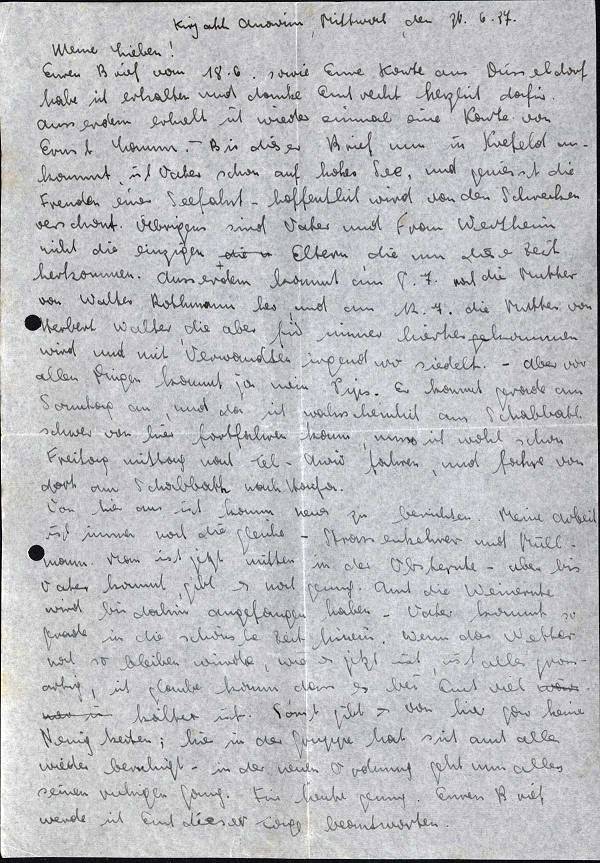 Kirjath Anavim, Mittwoch, den 26.6.37.
Meine Lieben!
Euren Brief vom 18.6. sowie Eure Karte aus Düsseldorf
habe ich erhalten und danke Euch recht herzlich dafür.
Ausserdem erhielt ich wieder einmal eine Karte von
Ernst. Bis dieser Brief nun in Krefeld an-
kommt, ist Vater schon auf hoher See, und geniesst die
Freuden einer Seefahrt - hoffentlich wird von den Schrecken
verschont. Übrigens sind Vater und Frau Wertheim
nicht die einzigen Eltern die um diese Zeit
herkommen. Ausserdem kommt am 7. noch die Mutter
von Walter Rothmann her, und am 12.7. die Mutter von
Herbert Walter, die aber für immer hierhergekommen
wird und mit Verwandten irgend wo siedelt. - Aber vor
allen Dingen kommt ja mein Pips. Er kommt gerade am
Sonntag an, und da ich wahrscheinlich am Schabbath
schwer von hier fortfahren kann, muss ich wohl schon
Freitag mittag nach Tel-Awiw fahren, und fahre von
dort am Schabbath nach Haifa.
Von hier aus ist kaum neues zu berichten. Meine Arbeit
ist immer noch die gleiche - Strassenkehrer und Müll-
mann. Man ist jetzt mitten in der Obsternte - aber bis
Vater kommt, gibt es noch genug. Auch die Weinernte
wird bis dahin angefangen haben - Vater kommt so
gerade in die schönste Zeit hinein. Wenn das Wetter
noch so bleiben würde, wie es jetzt ist, ist alles gross-
artig, ich glaube kaum dass es bei Euch viel
kälter ist. Sonst gibt es von hier gar keine
Neuigkeiten; hier in der Gruppe hat sich auch alles
wieder beruhigt - in der neuen Ordnung geht nun alles
seinen ruhigen Gang. Für heute genug. Euren Brief
werde ich Euch dieser beantworten.